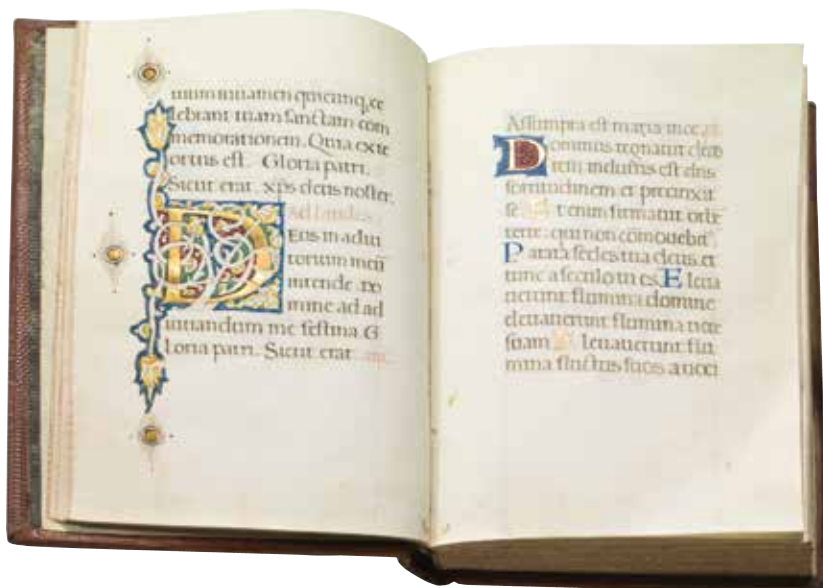 lebrant tuam sanctam com
memorationem. Quia exte
ortus est. Gloria patri.
Sicut erat. xps deus noster.
Ad laudes.
DEus in adiu
torium meū
intende. Do
mine ad ad
iuuandum me festina. G
loria patri. Sicut erat.
Assumpta est maria in ce
Dominus regnauit deco
rem indutus est dn̄s
fortitudinem et precinxit
se Et enim firmauit orbē
terre: qui non cōmouebit̄.
Parata sedes tua deus ex
tunc a seculo tu es. Eleua
uerunt flumina domine
eleuauerunt flumina uocē
suam Eleuauerunt flu
mina fluctus suos a uoci